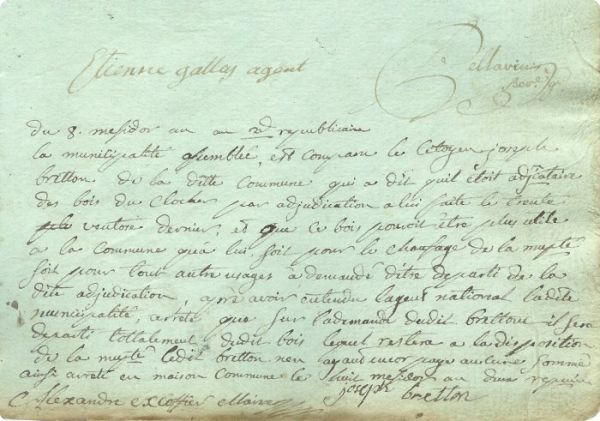 Etienne gallay agent
du 8. mesidor an an 2d republicaine
la municipalité asemblée, est comparu le Citoyen joseph
bretton de la dite Commune qui a dit quil étoit adjcataire
des bois du Clocher par adjudication a lui faite le trente
ventose dernier, et que ce bois pouvoit être plus utile
a la Commune qua lui soit pour le chaufage de la mupté
soit pour tout autre usages a demandé d'être departi de la
dite adjudication, apré avoir entendu lagent national ladite
municipalité, arrete que sur la demande dudit bretton il sera
departi tottalement dudit bois lequel restera a la disposition
de la mupté ledit bretton nen ayant encor payé aucune somme
ainsi arreté en maison Commune le huit mesidor an deux
joseph bretton
Alexandre exoffier Maire